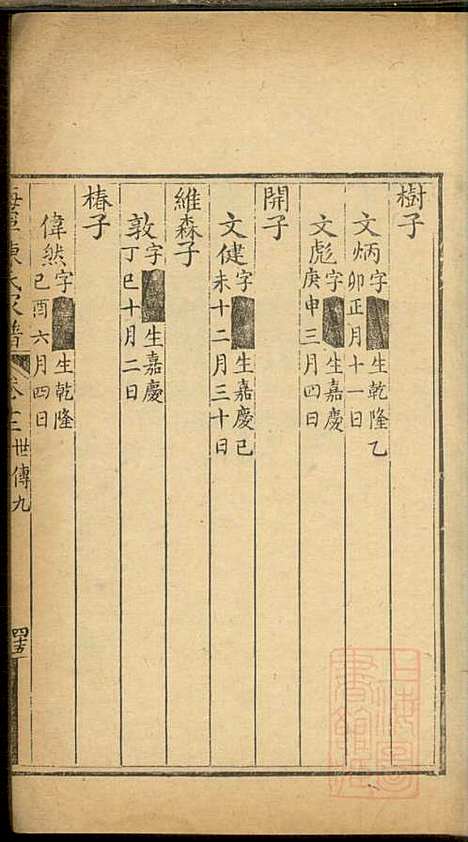 樹子
文炳字 生乾隆乙
卯正月十一日
文彪字 生嘉慶
庚申三月四日
開子
文健字 生嘉慶己
未十二月三十日
維森子
敦字 生嘉慶
丁巳十月二日
椿子
偉然字 生乾隆
己酉六月四日
海寧陳氏家譜 卷十三 世傳九
四十五